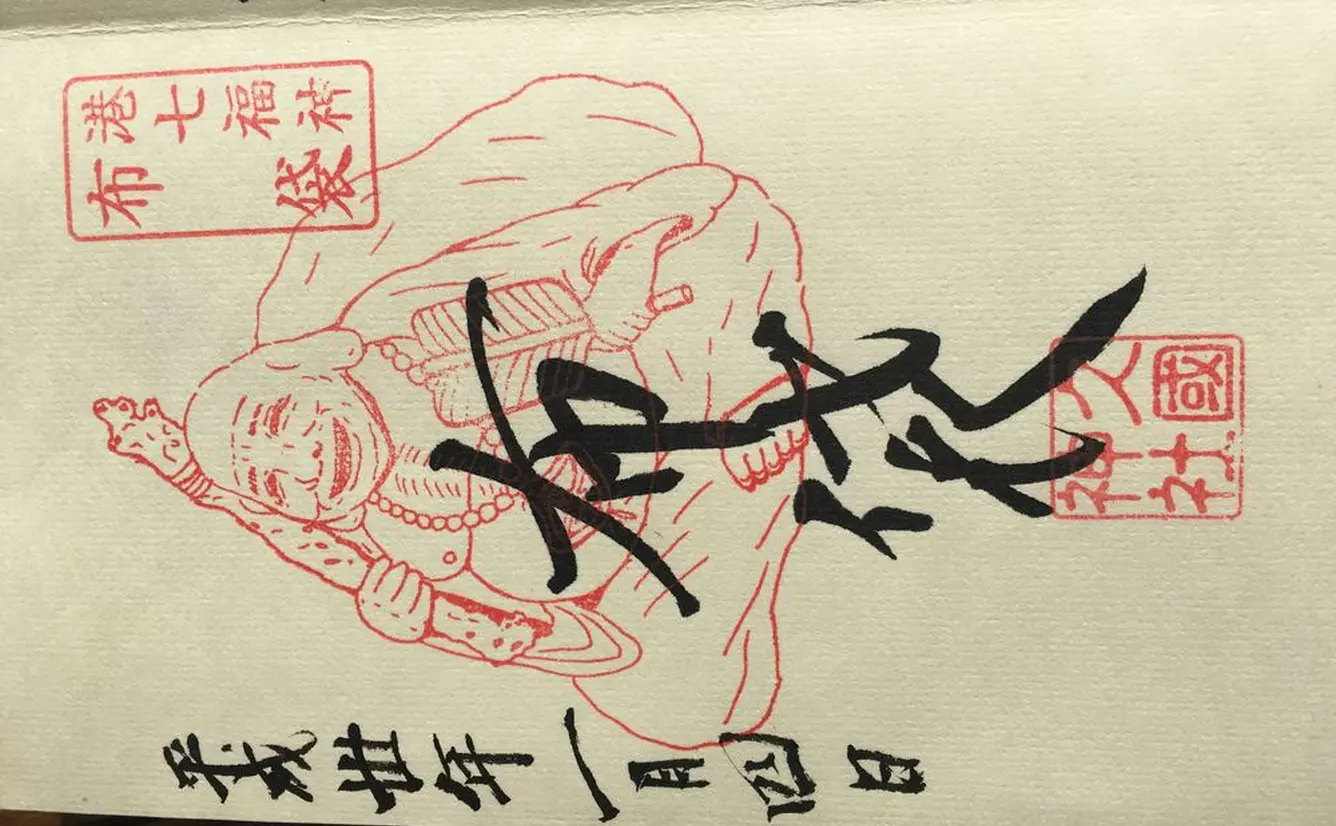 港七福神
布袋
布袋
久國
神社
平成丗年一月四日